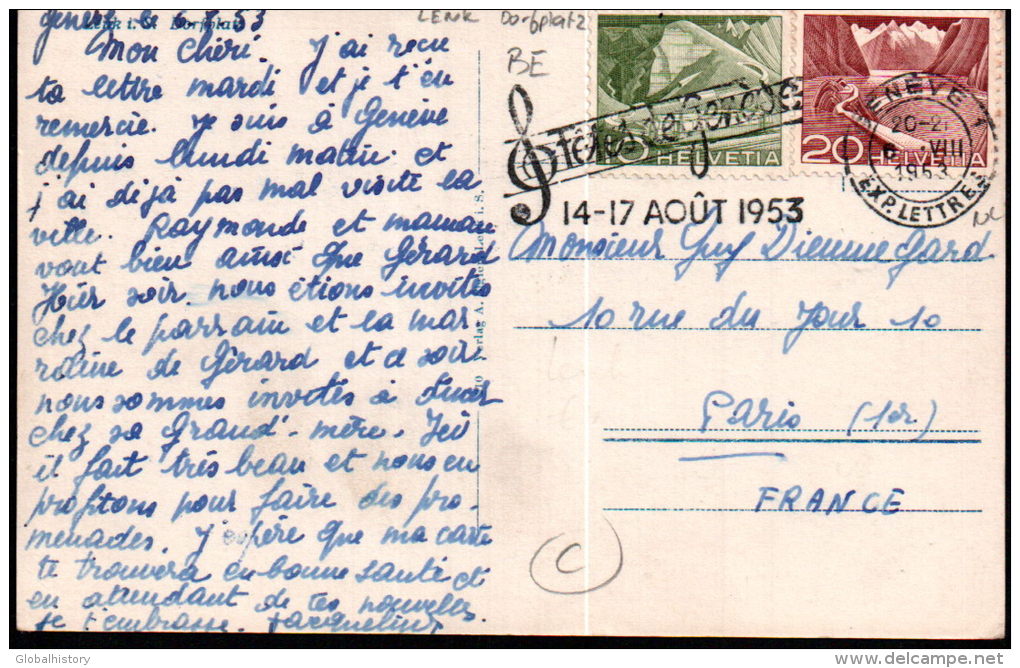 Genève le 6.8.53
Lenk i. S. Dorfplatz
Mon Chéri. J'ai recu
ta lettre mardi et je t'en
remercie. Je suis à Genève
depuis lundi matin et
j'ai déjà pas mal visité la
ville. Raymonde et maman
vont bien ainsi que Gérard
Hier soir nous étions invités
chez le parrain et la mar-
raine de Gérard et ce soir
nous sommes invités à diner
chez sa Grand'-mère. Ici
il fait très beau et nous en
profitons pour faire des pro-
menades. J'espère que ma carte
te trouvera en bonne santé et
en attendant de tes nouvelles
je t'embrasse. Jacqueline
Verlag A.
LENK Dorfplatz
BE
Fêtes de Genève
14-17 AOÛT 1953
HELVETIA
20 HELVETIA
GENÈVE 1
20-21
6. VIII
1953
EXP. LETTRES
Monsieur Guy Diennegard
10 rue du Jour 10
Paris (1er)
FRANCE
C
Globalhistory
delcampe.net